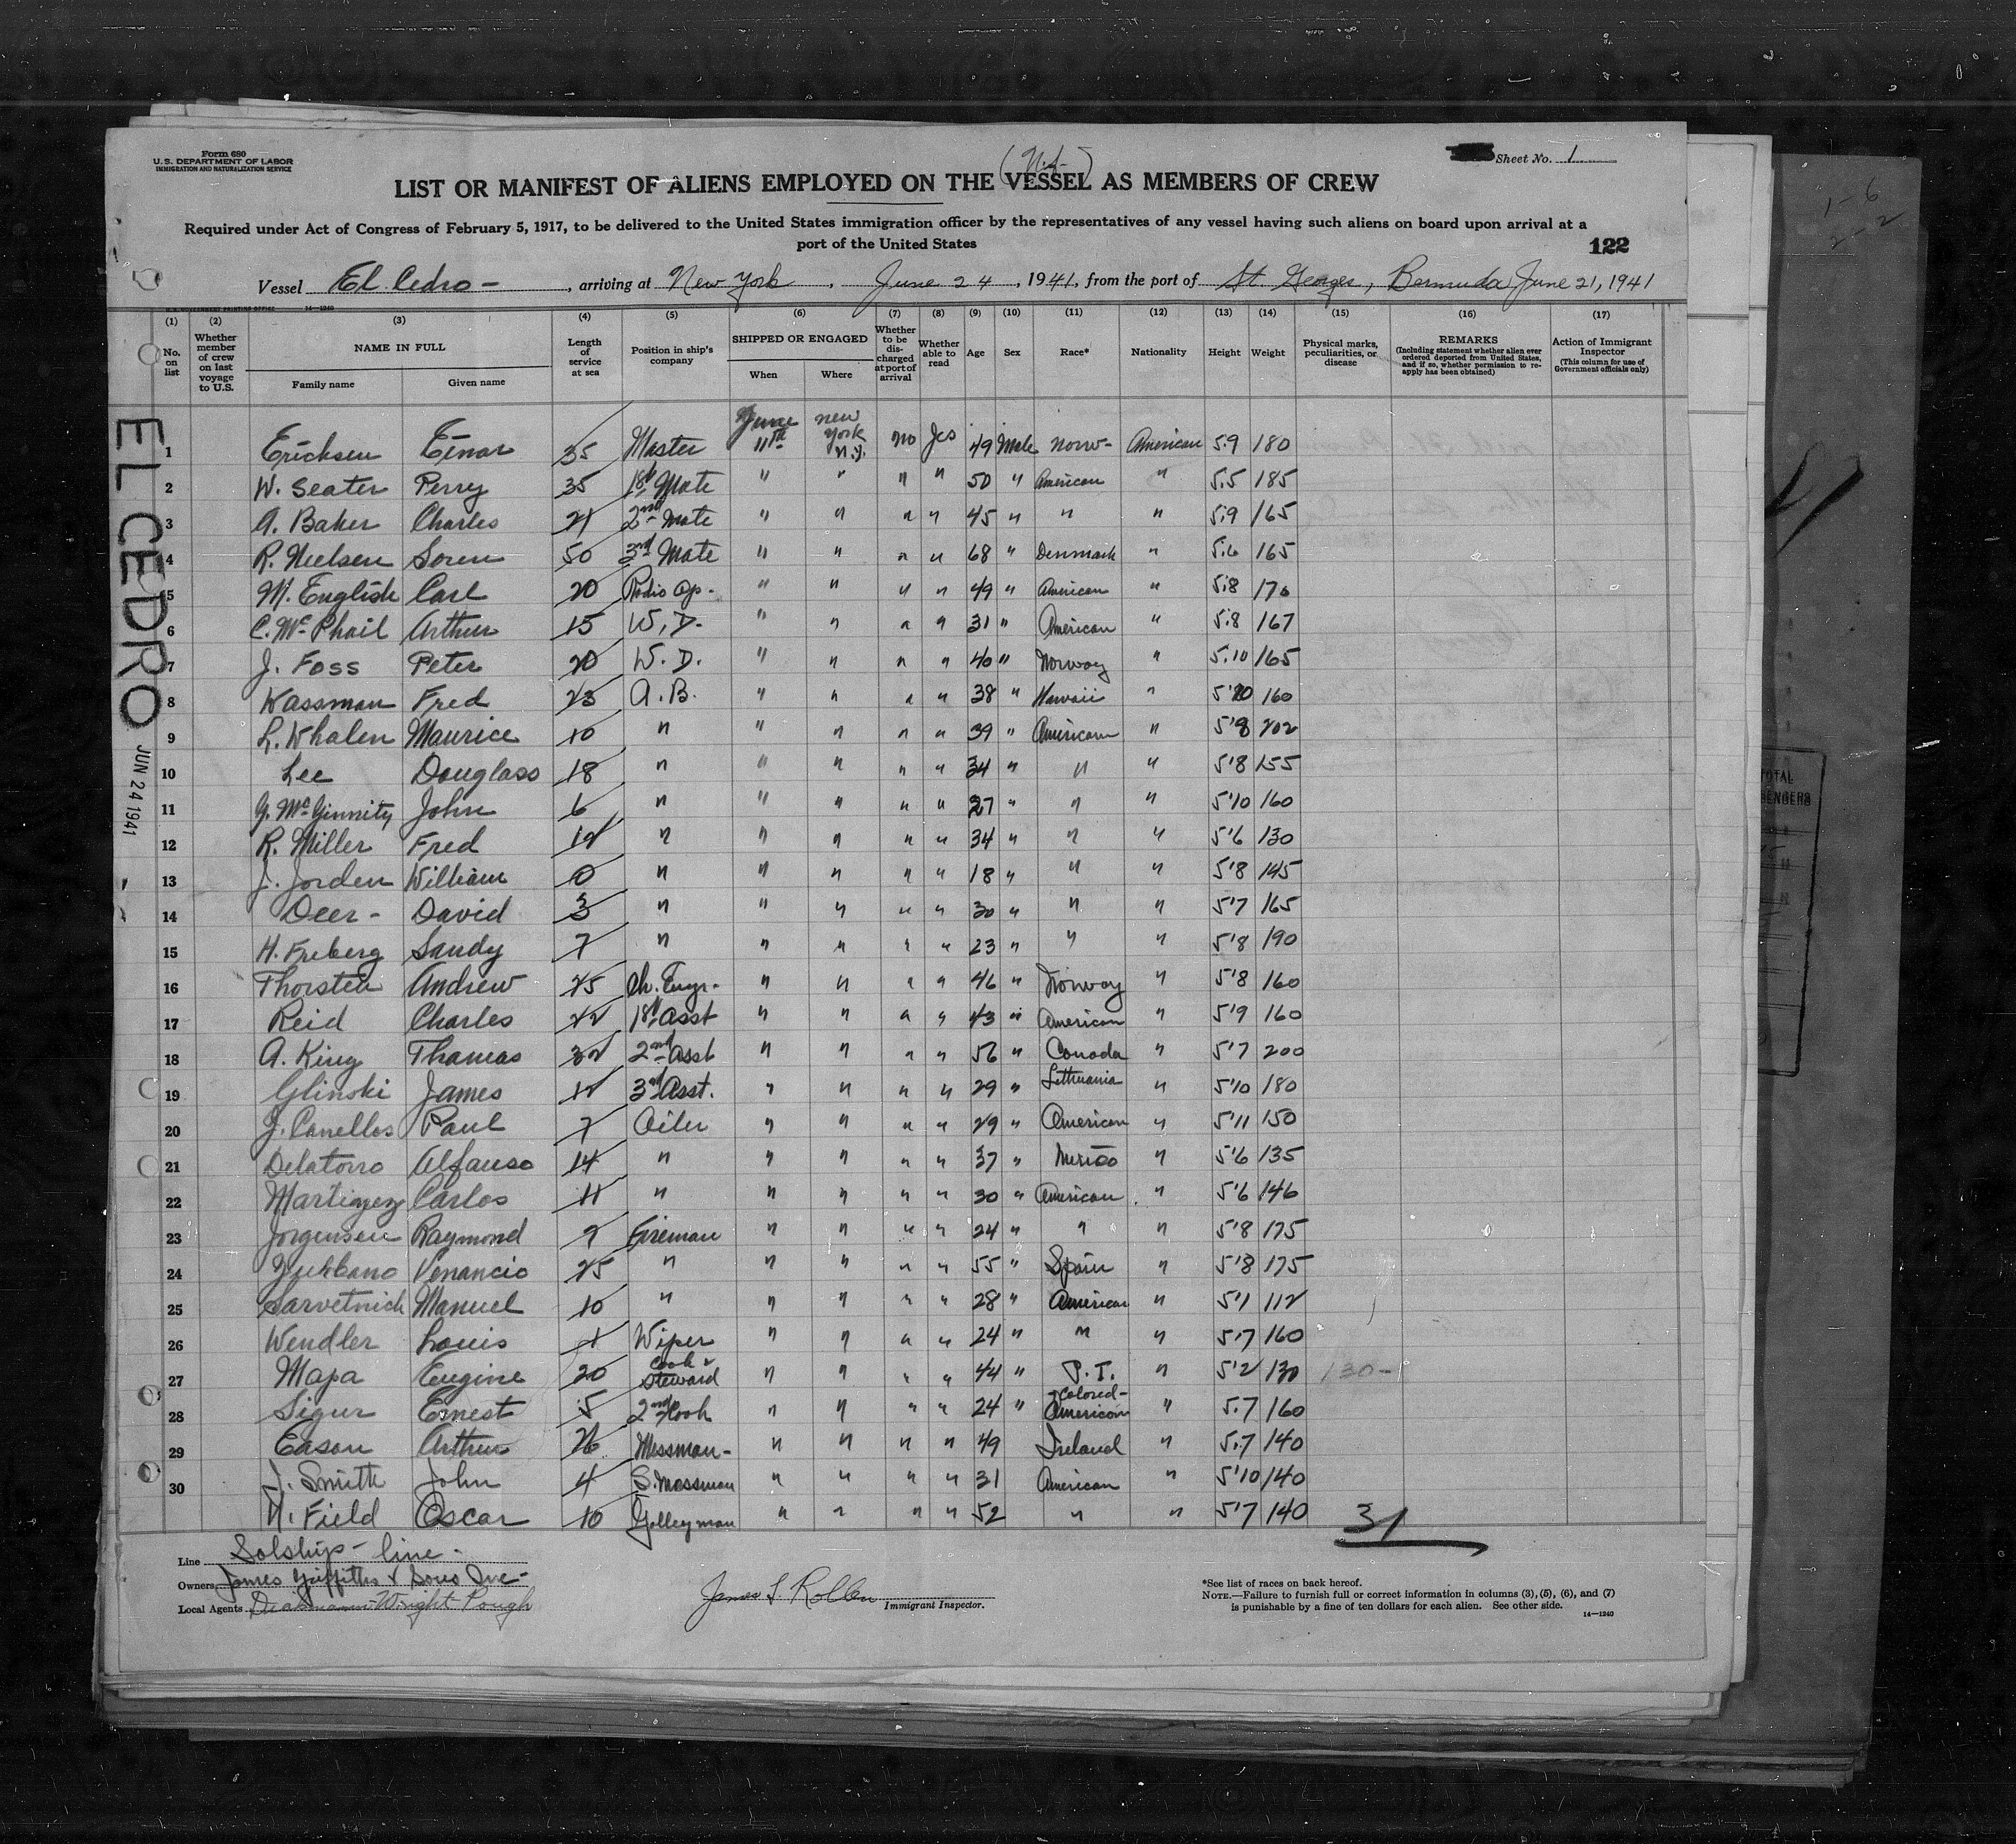 Form 680
U.S. DEPARTMENT OF LABOR
IMMIGRATION AND NATURALIZATION SERVICE
Sheet No. 1
LIST OR MANIFEST OF ALIENS EMPLOYED ON THE VESSEL AS MEMBERS OF CREW
Required under Act of Congress of February 5, 1917, to be delivered to the United States immigration officer by the representatives of any vessel having such aliens on board upon arrival at a
port of the United States
122
Vessel El Cedro - , arriving at New York , June 24 , 1941, from the port of St Georges, Bermuda June 21, 1941
(1) (2) (3) (4) (5) (6) (7) (8) (9) (10) (11) (12) (13) (14) (15) (16) (17)
No. on list Whether member of crew on last voyage to U.S. NAME IN FULL Family name Given name Length of service at sea Position in ship's company SHIPPED OR ENGAGED When Where Whether to be discharged at port of arrival Whether able to read Age Sex Race* Nationality Height Weight Physical marks, peculiarities, or disease REMARKS (Including statement whether alien ever ordered deported from United States, and if so, whether permission to reapply has been obtained) Action of Immigrant Inspector (This column for use of Government officials only)
EL CEDRO JUN 24 1941
1 Ericksen Einar 35 Master June 11th New York N.Y. no yes 49 Male Norw- American 5.9 180
2 W. Seater Perry 35 1st Mate " " " " 50 " American " 5.5 185
3 A. Baker Charles 21 2nd Mate " " " " 45 " " " 5.9 165
4 R. Nielsen Soren 50 3rd Mate " " " " 68 " Denmark " 5.6 165
5 M. English Carl 20 Radio Op. " " " " 49 " American " 5.8 170
6 C. McPhail Arthur 15 W.D. " " " " 31 " American " 5.8 167
7 J. Foss Peter 20 W.D. " " " " 40 " Norway " 5.10 165
8 Kassman Fred 23 A.B. " " " " 38 " Hawaii " 5'10 160
9 L. Whalen Maurice 10 " " " " " 39 " American " 5'8 202
10 Lee Douglass 18 " " " " " 34 " " " 5'8 155
11 G. McGinnity John 6 " " " " " 27 " " " 5'10 160
12 R. Miller Fred 12 " " " " " 34 " " " 5'6 130
13 J. Jorden William 0 " " " " " 18 " " " 5'8 145
14 Deer - David 3 " " " " " 30 " " " 5'7 165
15 H. Freberg Sandy 7 " " " " " 23 " " " 5'8 190
16 Thorsten Andrew 25 Ch. Engr. " " " " 46 " Norway " 5'8 160
17 Reid Charles 22 1st Asst " " " " 43 " American " 5'9 160
18 A. King Thomas 32 2nd Asst " " " " 56 " Canada " 5'7 200
19 Glinski James 12 3rd Asst. " " " " 29 " Lithuania " 5'10 180
20 J. Canellos Paul 7 Oiler " " " " 29 " American " 5'11 150
21 Delatorro Alfanso 14 " " " " " 37 " Mexico " 5'6 135
22 Martinez Carlos 11 " " " " " 30 " American " 5'6 146
23 Jorgensen Raymond 2 Fireman " " " " 24 " " " 5'8 175
24 Venancio 25 " " " " " 55 " Spain " 5'8 175
25 Sarvetnick Manuel 10 " " " " " 28 " American " 5'1 112
26 Wendler Louis 1 Wiper " " " " 24 " " " 5.7 160
27 Mapa Eugine 20 Cook & Steward " " " " 44 " P.I. " 5'2 130 130 -
28 Sigur Ernest 5 2nd Cook " " " " 24 " Colored - American " 5.7 160
29 Eason Arthur 26 Messman - " " " " 49 Ireland " 5.7 140
30 J. Smith John 4 S. Messman " " " " 31 American " 5'10 140
H. Field Oscar 10 Galleyman " " " " 52 " " 5'7 140 31
Line Solship - line -
Owners James Griffiths & Sons Inc -
Local Agents Wright Pough
Immigrant Inspector.
*See list of races on back hereof.
NOTE.—Failure to furnish full or correct information in columns (3), (5), (6), and (7)
is punishable by a fine of ten dollars for each alien. See other side.
14—1240